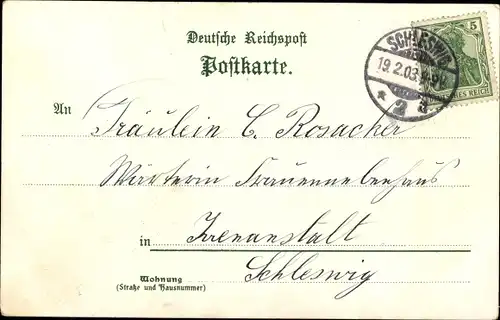 Deutsche Reichspost
Postkarte.
SCHLESWIG
19.2.03.
* 2
5
DEUTSCHES REICH
An
Fräulein C. Rosacker
Wärterin Frauennebenhaus
in Irrenanstalt
Schleswig
Wohnung
(Straße und Hausnummer)